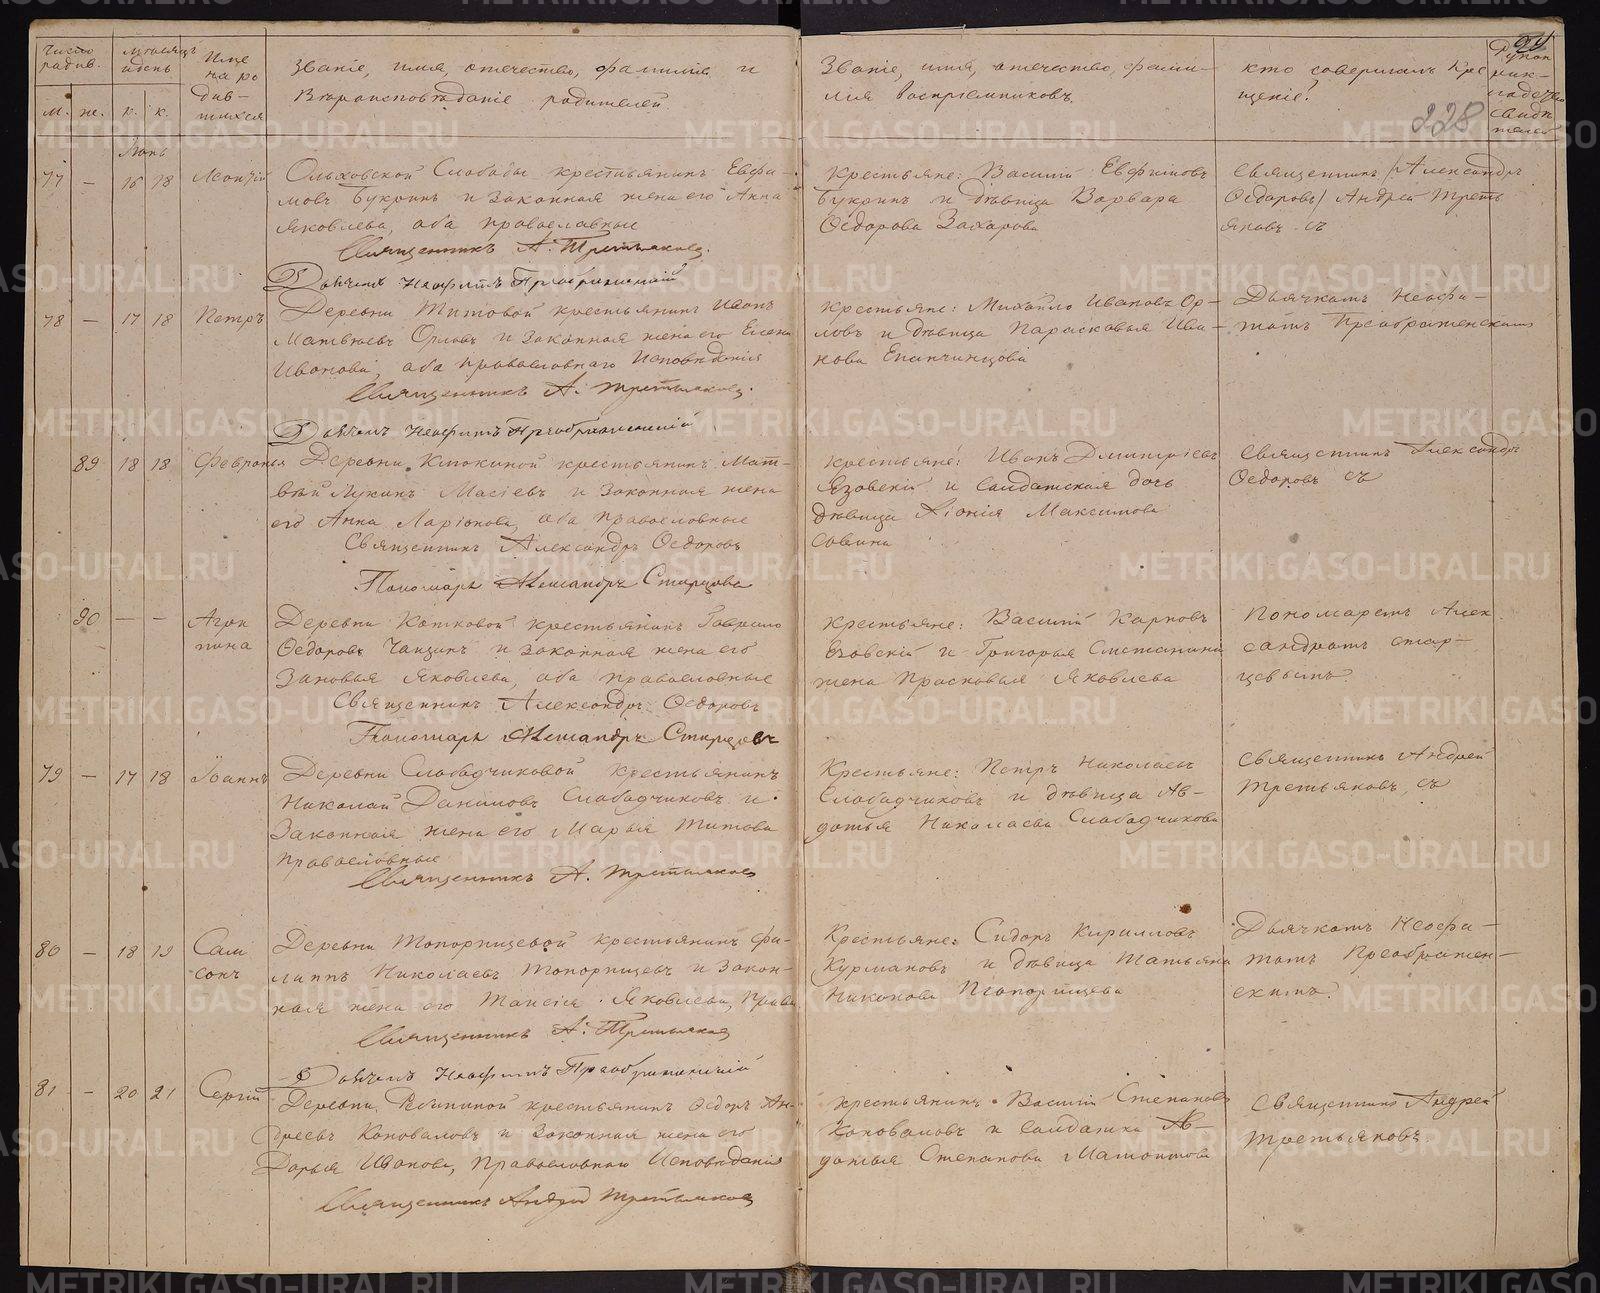 Число родив.
мѣсяцъ и день
Име на родив- шихся
Званіе, имя, отечество, фамилія и
Вѣроисповѣданіе родителей
Званіе, имя, отечество, фами-
лія Воспріемниковъ.
кто совершалъ Кре
щеніе?
228
м. же. р. к.
Июнь
77 — 16 18 Леонтій
Ольховской Слободы крестьянинъ Евфи-
мовъ Букринъ и законная жена его Анна
Яковлева, оба православные
Священникъ А. Третьяковъ.
Крестьяне: Василій Евфимовъ
Букринъ и дѣвица Варвара
Ѳедорова Захарова
Священникъ /Александръ
Ѳедоровъ/ Андрей Треть
яковъ съ
Дьячекъ Неофитъ Преображенскій
78 — 17 18 Петръ
Деревни Титовой крестьянинъ Иванъ
Матвѣевъ Орловъ и законная жена его Елена
Иванова, оба православнаго Исповѣданія
Священникъ А. Третьяковъ.
Крестьяне: Михайло Ивановъ Ор-
ловъ и дѣвица Парасковья Ива-
нова Епанчинцова
Дьячкомъ Неофи-
томъ Преображенскимъ
Дьячекъ Неофитъ Преображенскій
89 18 18 Февронья
Деревни Клюкиной крестьянинъ Мат-
вѣй Лукинъ и законная жена
его Анна Ларіонова, оба православные
Священникъ Александръ Ѳедоровъ
Пономарь Александръ Старцовъ
Крестьяне: Иванъ Дмитріевъ
Язовскій и солдатская дочь
дѣвица Хіонія Максимова
Савина
Священникъ Александръ
Ѳедоровъ съ
90 — — Агри
пина
Деревни Котковой крестьянинъ Гаврило
Ѳедоровъ и законная жена его
Зановья Яковлева, оба православные
Священникъ Александръ Ѳедоровъ
Пономарь Александръ Старцовъ
Крестьяне: Василій Карповъ
Езовскій и Григорья Сметанина
жена Прасковья Яковлева
Пономаремъ Алек
сандромъ стар-
цевымъ.
79 — 17 18 Іоаннъ
Деревни Слободчиковой крестьянинъ
Николай Даниловъ Слободчиковъ и
Законная жена его Марья Титова
православные
Священникъ А. Третьяковъ
Крестьяне: Петръ Николаевъ
Слободчиковъ и дѣвица Ав-
дотья Николаева Слободчикова
Священникъ Андрей
Третьяковъ, съ
80 — 18 19 Сам
сонъ
Деревни Топорищевой крестьянинъ Фи-
липпъ Николаевъ Топорищевъ и Закон-
ная жена его Таисія Яковлева, Прав
Священникъ А. Третьяковъ
Крестьяне: Сидоръ Кирилловъ
Курмановъ и дѣвица Татьяна
Никонова Топорищева
Дьячкомъ Неофи-
томъ Преображен-
скимъ.
Дьячекъ Неофитъ Преображенскій
81 — 20 21 Сергій
Деревни Рѣпиной крестьянинъ Ѳедоръ Ан-
дреевъ Коноваловъ и Законная жена его
Дарья Иванова, Православнаго Исповѣданія
Священникъ Андрей Третьяковъ
крестьянинъ Василій Степановъ
Коноваловъ и солдатка Ав-
дотья Степанова Мамонтова
Священникъ Андрей
Третьяковъ.